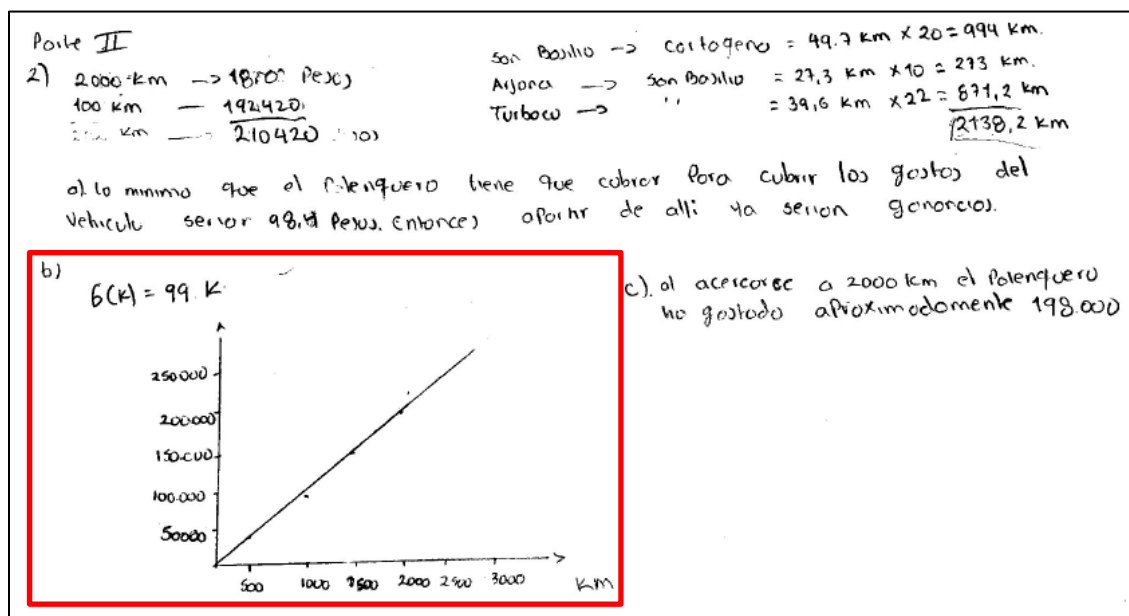 Parte II
2) 2000 km -> 18000 Pesos
100 km — 192420
km —> 210420
San Basilio -> Cartagena = 49.7 km x 20 = 994 km.
Arjona -> San Basilio = 27,3 km x 10 = 273 km.
Turbaco -> '' = 39,6 km x 22 = 871,2 km
2138,2 km
a) lo minimo que el Palenquero tiene que cobrar Para cubrir los gastos del
vehiculo serian 98,4 Pesos. Entonces apartir de alli ya serian ganancias.
b)
G(K) = 99. K
250000
200.000
150.000
100.000
50000
500 1000 1500 2000 2500 3000 KM
c). al acercarse a 2000 km el Palenquero
ha gastado aproximadamente 198.000